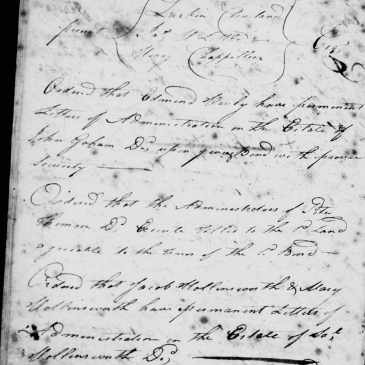 present
Esqr
Ordered that Edmund have permanent
Letters of Administration on the Estate of
John Goham Decd upon giving Bond with proper
Security
Ordered that the Administrators of
Thomson Dd Execute titles to the sd Land
agreeable to the tenor of the sd Bond
Ordered that Jacob Hollinsworth & Mary
Hollinsworth have permanent Letters of
Administration on the Estate of
Hollinsworth Decd